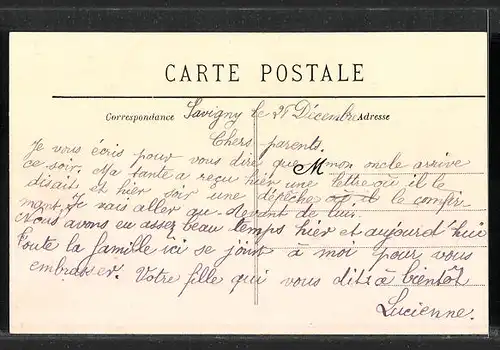 CARTE POSTALE
Correspondance Savigny le 25 Décembre Adresse
Chers parents.
Je vous écris pour vous dire que M mon oncle arrive
ce soir. Ma tante a reçu hier une lettre où il le
disait et hier soir une dépêche où il le confir
mant, Je vais aller au-devant de lui.
Nous avons eu assez beau temps hier et aujourd'hui
toute la famille ici se joint à moi pour vous
embrasser. Votre fille qui vous dit à bientôt
Lucienne.